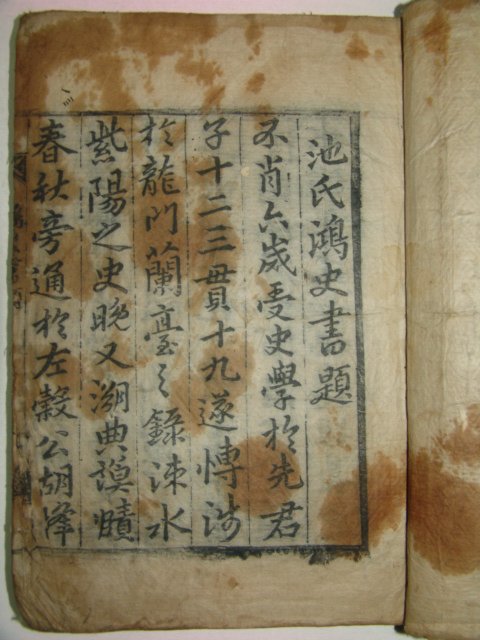 池氏鴻史書題
不肖六歲受史學於先君
子十二三貫十九遂博涉
於龍門蘭臺之錄涑水
紫陽之史晩又溯典謨賾
春秋旁通於左穀公胡洚